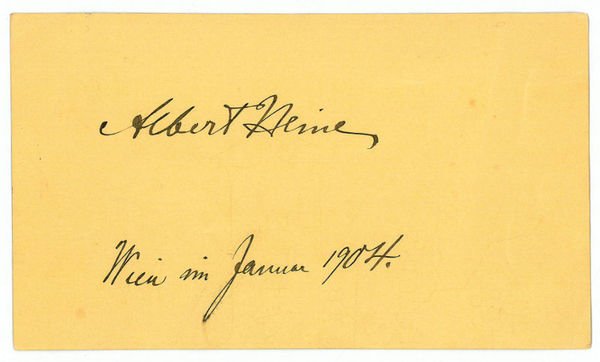 Albert Heine
Wien im Januar 1904.